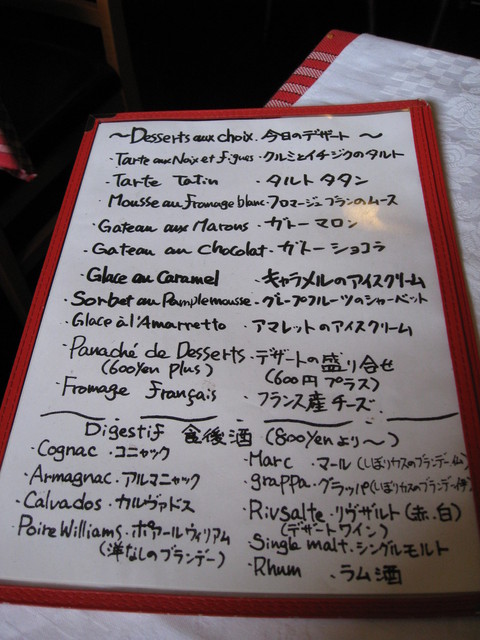 ～Desserts aux choix. 今日のデザート ～
・Tarte aux Noix et figues・クルミとイチジクのタルト
・Tarte Tatin ・タルト タタン
・Mousse au fromage blanc・フロマージュブランのムース
・Gateau aux Marons・ガトーマロン
・Gateau au chocolat・ガトーショコラ
・Glace au Caramel ・キャラメルのアイスクリーム
・Sorbet au Pamplemousse・グレープフルーツのシャーベット
・Glace à l'Amarretto ・アマレットのアイスクリーム
・Panaché de Desserts・デザートの盛り合せ
(600yen plus) (600円プラス)
・Fromage français ・フランス産チーズ
Digestif 食後酒 (800yenより～)
・Cognac・コニャック
・Armagnac・アルマニャック
・Calvados・カルヴァドス
・Poire Williams・ポアールウィリアム
(洋なしのブランデー)
・Marc ・マール(しぼりカスのブランデー仏)
・grappa・グラッパ(しぼりカスのブランデー伊)
・Rivsalte・リヴザルト(赤、白)
(デザートワイン)
・Single malt・シングルモルト
・Rhum ・ラム酒